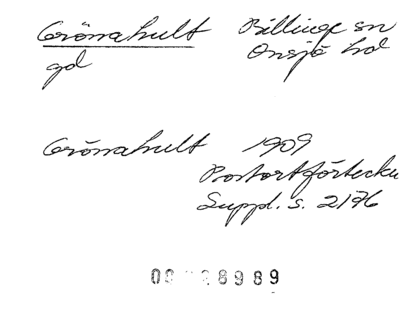 Grönahult Billinge sn
gd Onsjö hd
Grönahult 1909
Postortförteckn
Suppl. s. 2176
8989